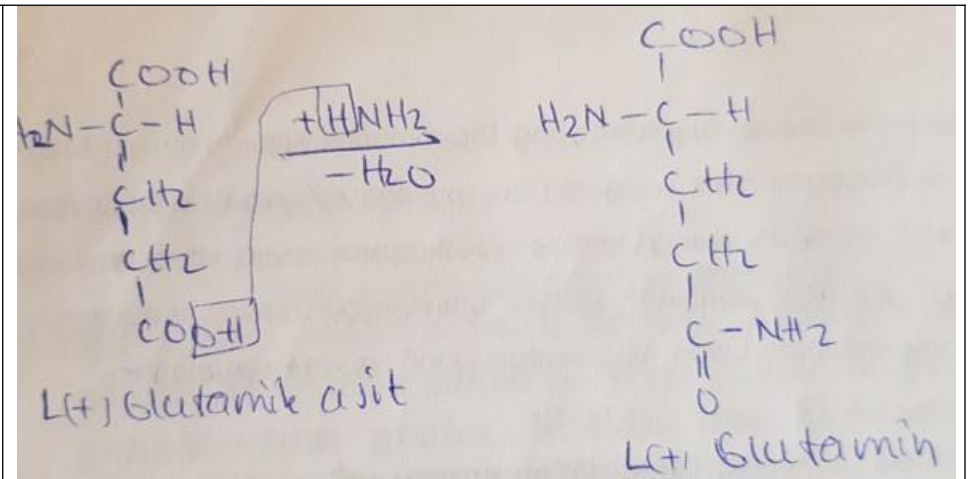 COOH
H2N-C-H
CH2
CH2
COOH
L(+) Glutamik asit
+HNH2
-H2O
COOH
H2N-C-H
CH2
CH2
C-NH2
O
L(+) Glutamin